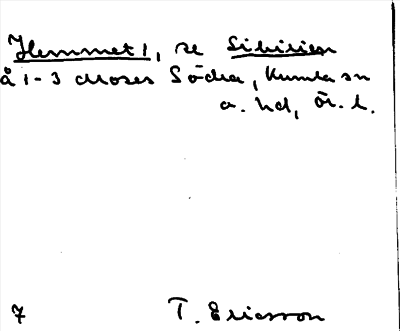 Hemmet 1, se Sibirien
å 1-3 Mosas Södra, Kumla sn
o. hd, Ör. l.
7 T. Ericsson